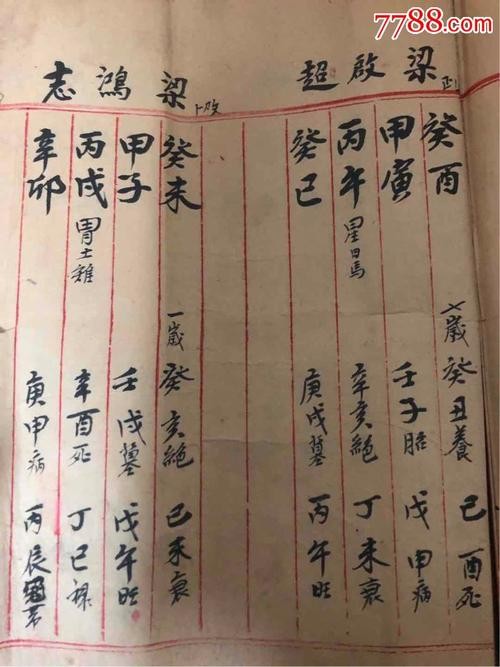 7788.com
梁啟超
癸酉 七歲 癸丑養 己酉死
甲寅 壬子胎 戊申病
丙午 星日馬 辛亥絕 丁未衰
癸巳 庚戌墓 丙午旺
梁鴻志
癸未 一歲 癸亥絕 己未衰
甲子 壬戌墓 戊午旺
丙戌 胃土雉 辛酉死 丁巳祿
辛卯 庚申病 丙辰